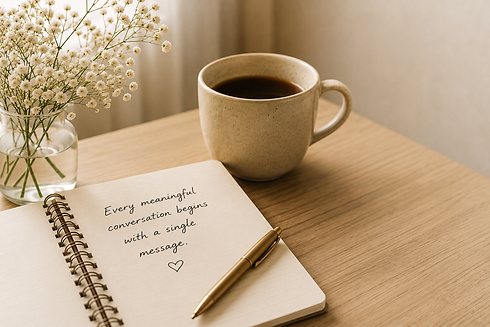 Every meaningful
conversation begins
with a single
message.
♡